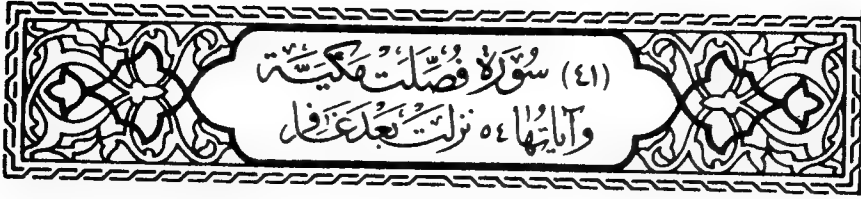 (٤١) سُورَة فُصِّلَتْ مَكِّيَّة
وَآيَاتُهَا ٥٤ نَزَلَتْ بَعْدَ غَافِر